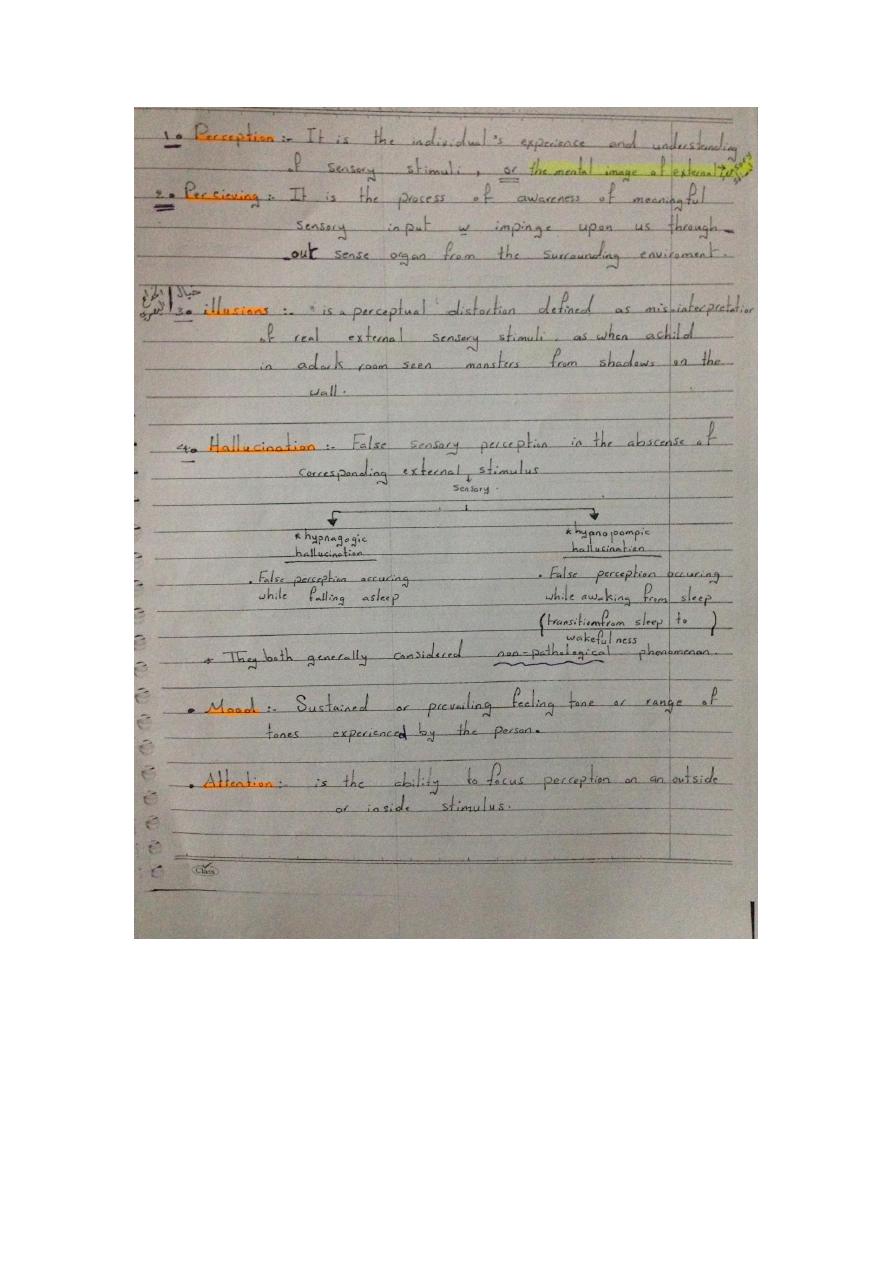 1. Perception :- It is the individual's experience and understanding
of sensory stimuli, or the mental image of external sensory
2. Percieving :- It is the process of awareness of meaningful
sensory input w impinge upon us through
out sense organ from the surrounding enviroment.
خيال
3. illusions :- is a perceptual distortion defined as misinterpretation
of real external sensory stimuli. as when a child
in a dark room seen monsters from shadows on the
wall.
4. Hallucination :- False sensory perception in the abscense of
corresponding external stimulus
sensory.
* hypnagogic
hallucination
. False perception occuring
while falling asleep
* hypnopompic
hallucination
. False perception occuring
while awaking from sleep
(transition from sleep to
wakefulness)
* They both generally considered non-pathological phenomenon.
• Mood :- Sustained or prevailing feeling tone or range of
tones experienced by the person.
• Attention :- is the ability to focus perception on an outside
or inside stimulus.
Class